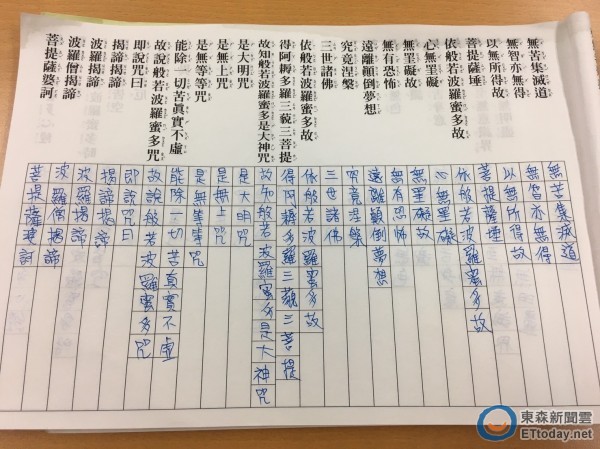 無苦集滅道
無智亦無得
以無所得故
菩提薩埵
依般若波羅蜜多故
心無罣礙
無罣礙故
無有恐怖
遠離顛倒夢想
究竟涅槃
三世諸佛
依般若波羅蜜多故
得阿耨多羅三藐三菩提
故知般若波羅蜜多是大神咒
是大明咒
是無上咒
是無等等咒
能除一切苦真實不虛
故說般若波羅蜜多咒
即說咒曰
揭諦揭諦
波羅揭諦
波羅僧揭諦
菩提薩婆訶
無苦集滅道
無智亦無得
以無所得故
菩提薩埵
依般若波羅蜜多故
心無罣礙
無罣礙故
無有恐怖
遠離顛倒夢想
究竟涅槃
三世諸佛
依般若波羅蜜多故
得阿耨多羅三藐三菩提
故知般若波羅蜜多是大神咒
是大明咒
是無上咒
是無等等咒
能除一切苦真實不虛
故說般若波羅蜜多咒
即說咒曰
揭諦揭諦
波羅揭諦
波羅僧揭諦
菩提薩婆訶
東森新聞雲
ETtoday.net